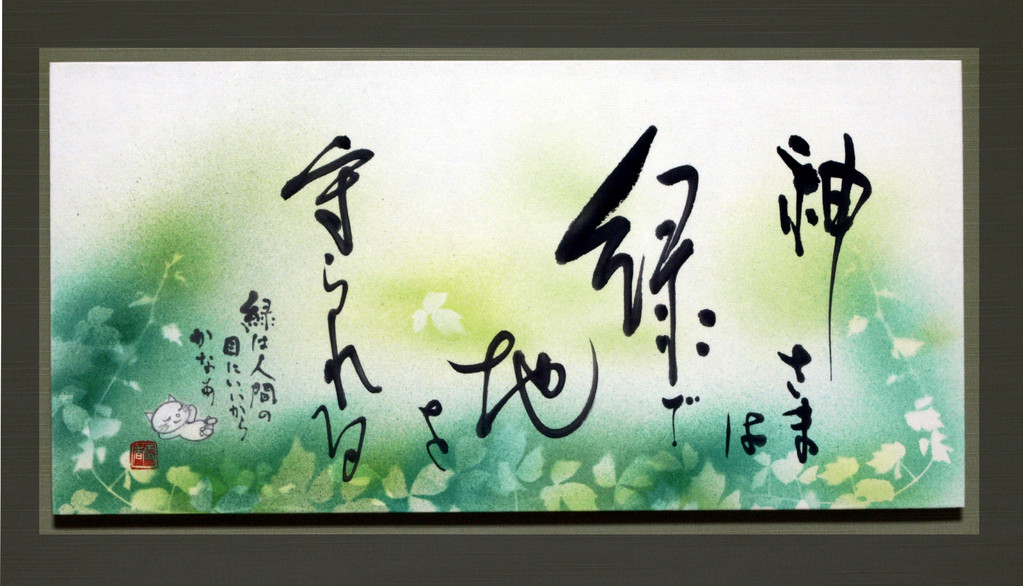 神さま
は
緑で
地を
守られる
緑は人間の
目にいいから
かなあ